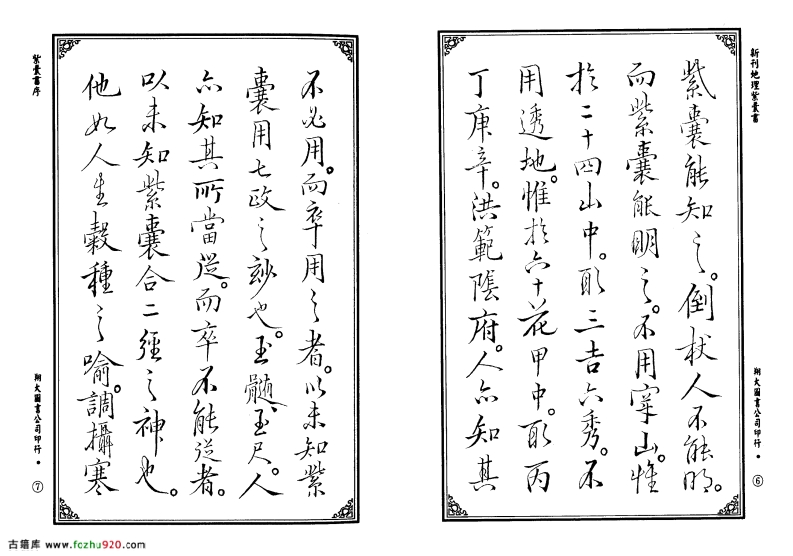 新刊地理紫囊書
紫囊能知之。倒杖人不能明。
而紫囊能明之。不用穿山。惟
於二十四山中。取三吉六秀。不
用透地。惟於六十花甲中。取丙
丁庚辛。洪範陰府。人亦知其
翔大圖書公司印行•
⑥
不必用。而卒用之者。以未知紫
囊用七政之玅也。玉髓、玉尺。人
亦知其所當從。而卒不能從者。
以未知紫囊合二經之神也。
他如人生穀種之喻。調攝寒
紫囊書序
翔大圖書公司印行•
⑦
古籍库 www.fczhu920.com